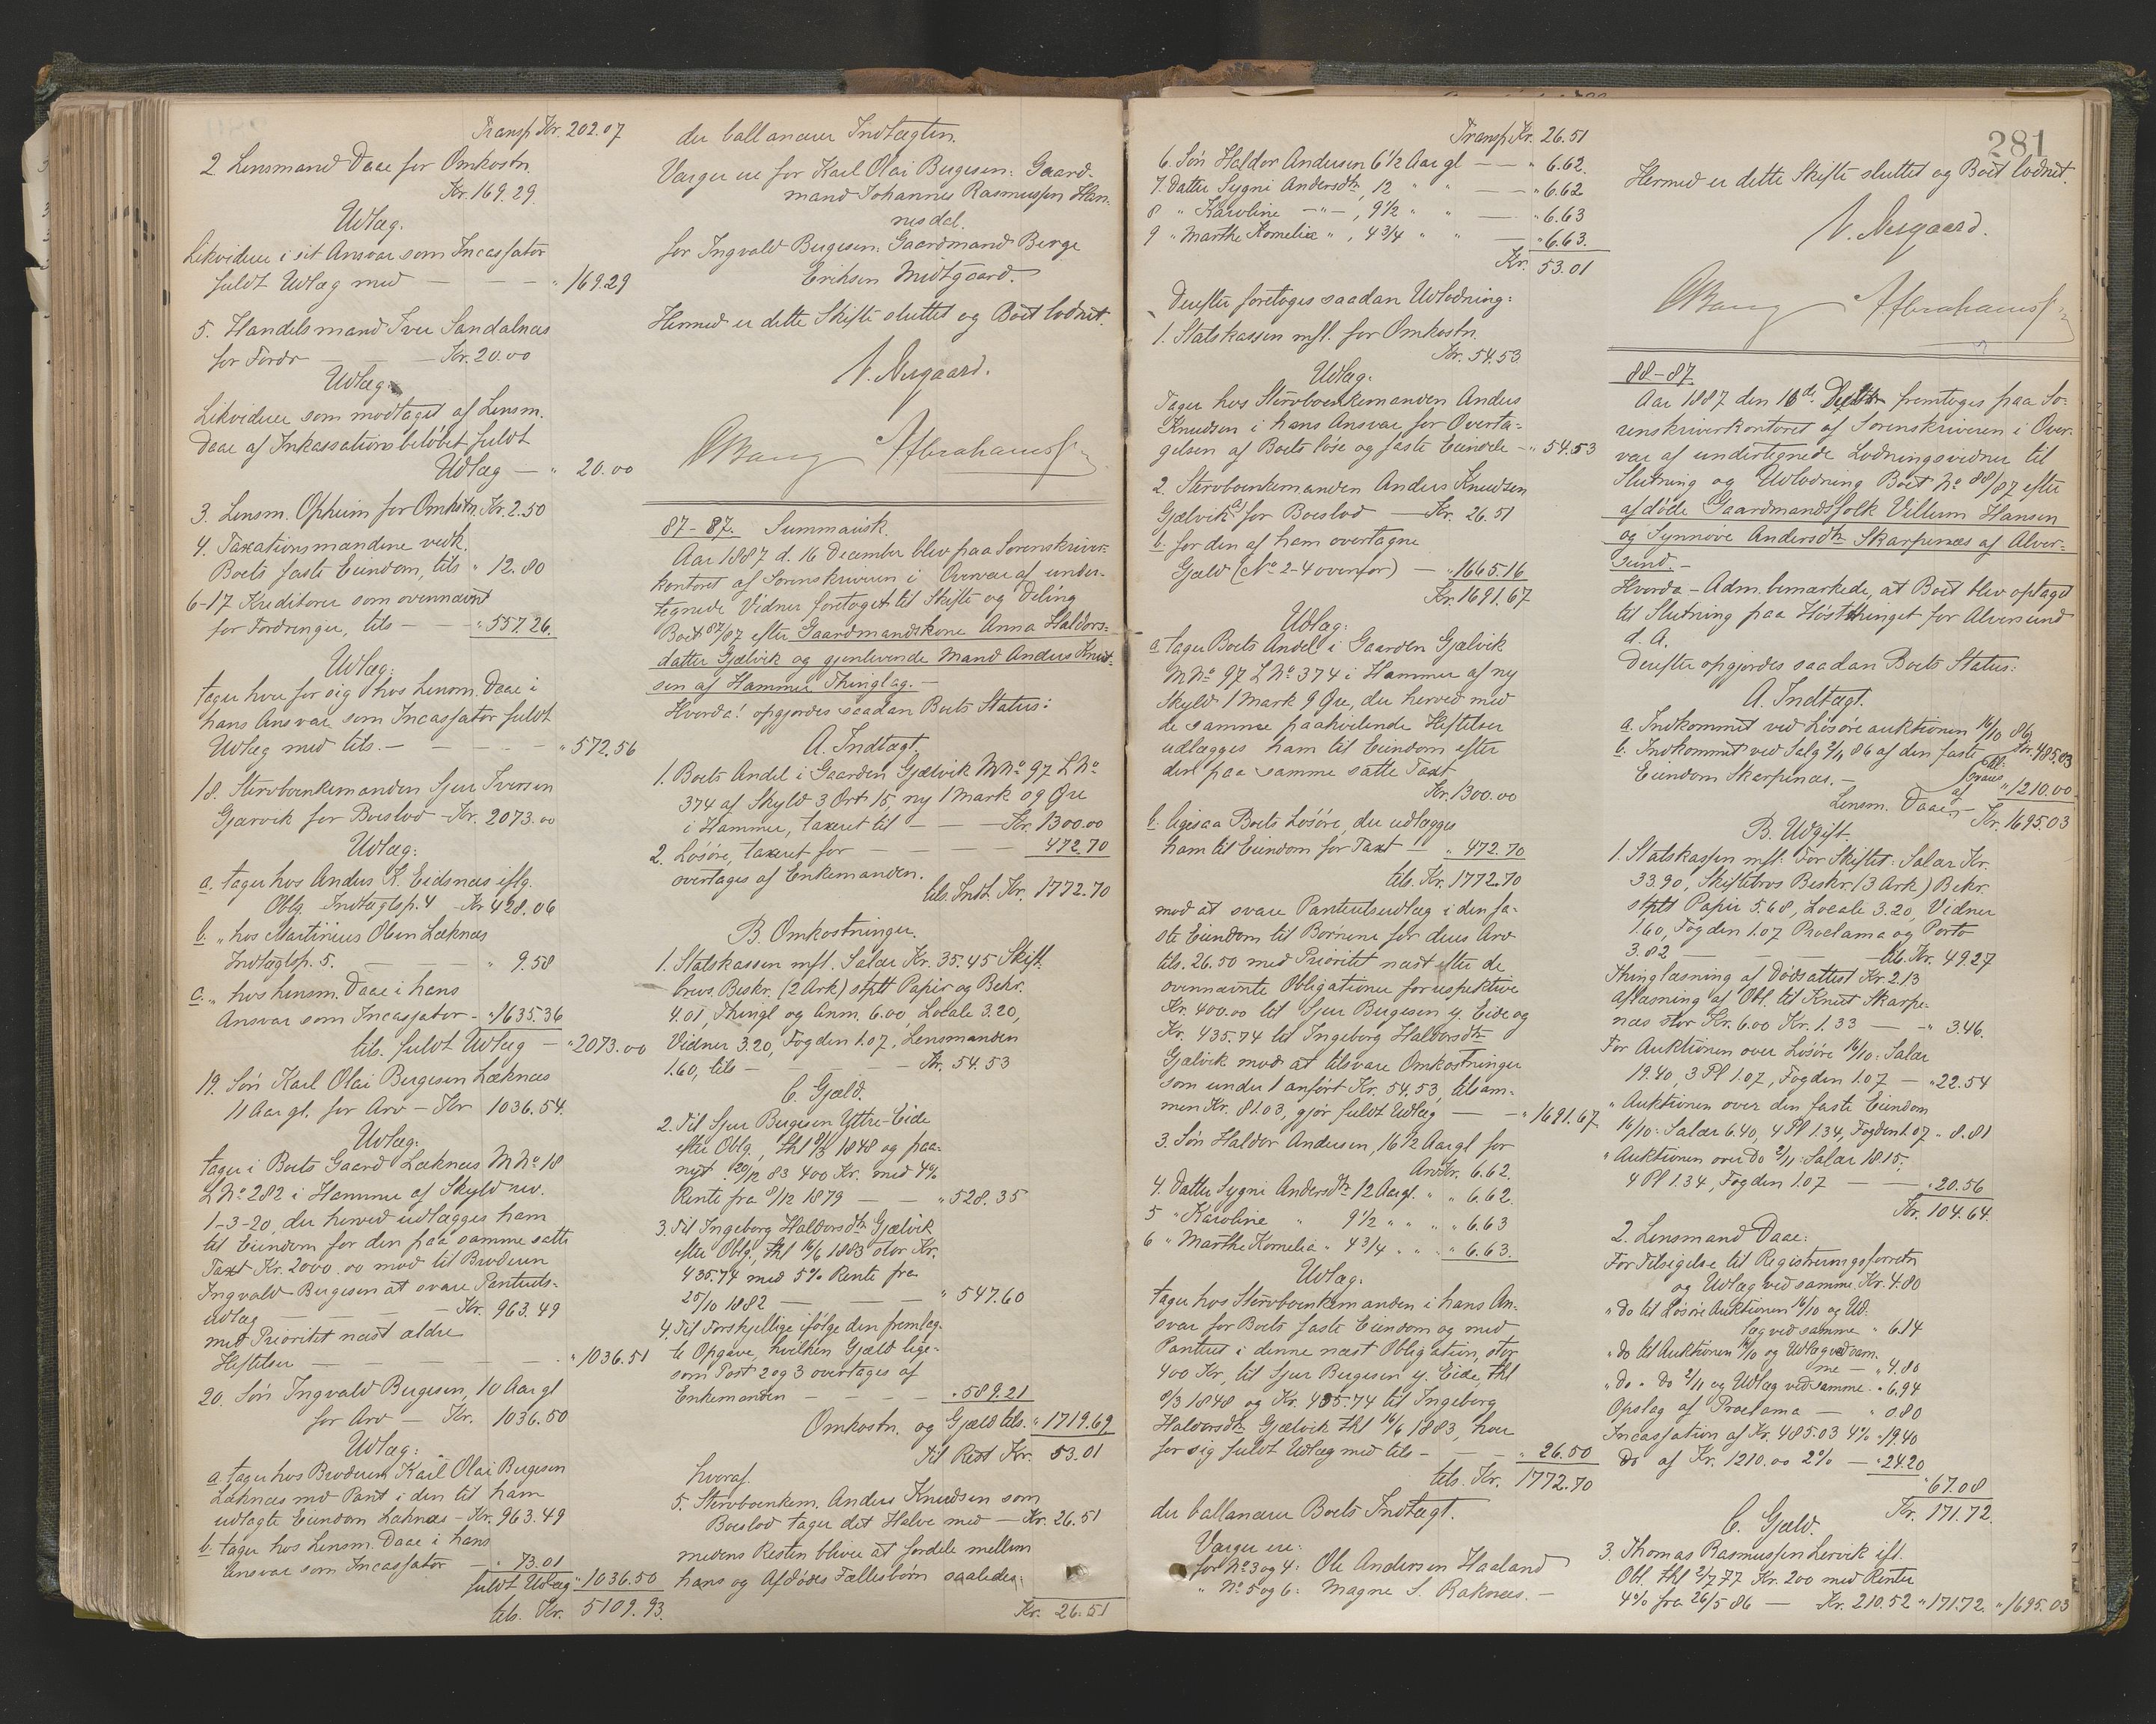 Transp. Kr. 202.07
2 Lensmand Daae for Omkostn.
Kr. 169.29.
Udlæg.
Likviderer i sit Ansvar som Incassator
fuldt Udlæg med — — — " 169.29
5. Handelsmand Iver Sandalnæs
for Fordr — — Kr. 20.00
Udlæg:
Likviderer som modtaget af Lensm.
Daae af Inkassationsbeløbet fuldt
Udlæg — " 20.00
3. Lensm. Opheim for Omkstn. Kr. 2.50
4. Taxationsmændene vedk.
Boets faste Eiendom, tils " 12.80
6-17 Kreditorer som ovennævnt
for Fordringer, tils — — " 557.26.
Udlæg:
tager hver for sig hos Lensm. Daae i
hans Ansvar som Incassator fuldt
Udlæg med tils. — — — — " 572.56
18. Stervboenkemanden Sjur Iversen
Gjærvik for Boeslod — Kr. 2073.00
Udlæg:
a. tager hos Anders K. Eidsnæs iflg.
Oblg. Indtægtsp. 4 — Kr. 428.06
b. " hos Martinius Olsen Læknæs
Indtægtsp. 5. — — " 9.58
c. " hos Lensm. Daae i hans
Ansvar som Incassator — " 1635.36
tils. fuldt Udlæg — " 2073.00
19. Søn Karl Olai Bergesen Læknæs
11 Aar gl. for Arv — Kr 1036.54.
Udlæg:
tager i Boets Gaard Læknæs MNo 18
LNo 282 i Hammer af Skyld rev.
1-3-20, der herved udlægges ham
til Eiendom for den paa samme satte
Taxt Kr. 2000.00 mod til Broderen
Ingvald Bergesen at svare Pantuds-
udlæg — — — Kr. 963.49
med Prioritet næst ældre
Heftelser — — — — — " 1036.51
20. Søn Ingvald Bergesen, 10 Aar gl
for Arv — Kr. 1036.50
Udlæg:
a. tager hos Broderen Karl Olai Bergesen
Læknæs med Pant i den til ham
udlagte Eiendom Læknæs — Kr. 963.49
b. tager hos Lensm. Daae i hans
Ansvar som Incassator — " 73.01
fuldt Udlæg " 1036.50
tils. Kr. 5109.93.
der ballancerer Indtægten.
Værger ere for Karl Olai Bergesen: Gaard-
mand Johannes Rasmussen Han-
nisdal.
for Ingvald Bergesen: Gaardmand Berge
Eriksen Midtgaard.
Hermed er dette Skifte sluttet og Boet lodnet.
N. Nergaard.
OBang Abrahams
87-87. Summarisk.
Aar 1887 d. 16 December blev paa Sorenskriver-
kontoret af Sorenskriveren i Overvær af under-
tegnede Vidner foretaget til Skifte og Deling
Boet 87/87 efter Gaardmandskone Anna Haldors-
datter Gjelvik og gjenlevende Mand Anders Knud-
sen af Hammer Thinglag. —
Hvorda! opgjordes saadan Boets Status:
A. Indtægt.
1. Boets Andel i Gaarden Gjelvik MNo 97 LNo
374 af Skyld 3 Ort 15, ny 1 Mark 09 Øre
i Hammer, taxeret til — — — Kr. 1300.00
2. Løsøre, taxeret for — — — — 472.70
overtages af Enkemanden.
tils. Indt. Kr. 1772.70
B. Omkostninger.
1. Statskassen mfl. Salær Kr. 35.45 Skift.
brevs. Beskr. (2 Ark) stplt Papir og Bekr.
4.01, Thingl og Anm. 6.00, Locale 3.20,
Vidner 3.20, Fogden 1.07, Lensmanden
1.60, tils — — — — Kr. 54.53
C. Gjæld.
2. Til Sjur Bergesen Yttre-Eide
efter Oblg., thl 8/3 1848 og paa-
nyt 20/12 83 400 Kr. med 4%
Rente fra 8/12 1879 — — " 528.35
3. Til Ingeborg Haldorsdtr. Gjelvik
efter Oblg., thl 16/6 1883 stor Kr.
435.74 med 5% Rente fra
25/10 1882 — — — " 547.60
4. Til Forskjellige ifølge den fremlag-
te Opgave, hvilken Gjæld lige-
som Post 2 og 3 overtages af
Enkemanden — — — — " 589.21
Omkostn. og Gjæld tils. " 1719.69
Til Rest Kr. 53.01
hvoraf.
5. Stervboenkem. Anders Knudsen som
Boeslod tager det Halve med — Kr. 26.51
medens Resten bliver at fordele mellem
hans og Afdødes Fællesbørn saaledes:
Kr. 26.51
281
Transp. Kr. 26.51
6. Søn Haldor Andersen 16 1/2 Aar gl — — " 6.62.
7. Datter Sygni Andersdtr, 12 " " — — " 6.62
8 " Karoline — " —, 9 1/2 " " — " 6.63
9 " Marthe Kornelia ", 4 3/4 " " — " 6.63.
Kr. 53.01
Derefter foretoges saadan Udlodning:
1. Statskassen mfl. for Omkostn.
Kr. 54.53
Udlæg.
Tager hos Stervboenkemanden Anders
Knudsen i hans Ansvar for Overta-
gelsen af Boets løse og faste Eiendele — " 54.53
2. Stervboenkemanden Anders Knudsen
Gjelvik a) for Boeslod — Kr. 26.51
b. for den af ham overtagne
Gjæld (No 2-4 ovenfor) — " 1665.16
Kr. 1691.67
Udlæg:
a. tager Boets Andel i Gaarden Gjelvik
MNo 97 LNo 374 i Hammer af ny
Skyld 1 Mark 9 Øre, der herved med
de samme paahvilende Heftelser
udlægges ham til Eiendom efter
den paa samme satte Taxt
Kr. 1300.00
b. ligesaa Boets Løsøre, der udlægges
ham til Eiendom for Taxt — " 472.70
tils. Kr. 1772.70
mod at svare Panteudlæg i den fa-
ste Eiendom til Børnene for deres Arv
tils. 26.50 med Prioritet næst efter de
ovennævnte Obligationer for respektive
Kr. 400.00 til Sjur Bergesen y. Eide og
Kr. 435.74 til Ingeborg Haldorsdtr
Gjelvik mod at tilsvare Omkostninger
som under 1 anført Kr. 54.53, tilsam-
men Kr. 81.03, gjør fuldt Udlæg — — " 1691.67
3. Søn Haldor Andersen, 16 1/2 Aar gl for
Arv Kr. 6.62.
4. Datter Sygni Andersdtr 12 Aar gl. " " 6.62.
5 " Karoline " 9 1/2 " " " " 6.63
6 " Marthe Kornelia " 4 3/4 " " " " 6.63.
Udlæg.
tager hos Stervboenkemanden i hans An-
svar for Boets faste Eiendom og med
Panteret i denne næst Obligation, stor
400 Kr, til Sjur Bergesen y. Eide, thl
8/3 1848 og Kr. 435.74 til Ingeborg
Haldorsdtr. Gjelvik thl 16/6 1883, hver
for sig fuldt Udlæg med tils — — — " 26.50
tils. Kr. 1772.70
der ballancerer Boets Indtægt.
Værger ere:
for No 3 og 4: Ole Andersen Haaland
" No 5 og 6: Magne S. Raknæs. —
Hermed er dette Skifte sluttet og Boet lodnet.
N. Nergaard.
OBang Abrahams
88-87.
Aar 1887 den 16de Decbr fremtoges paa So-
renskriverkontoret af Sorenskriveren i Over-
vær af undertegnede Lodningsvidner til
Slutning og Udlodning Boet No 88/87 efter
afdøde Gaardmandsfolk Villum Hansen
og Synnøve Andersdtr. Skarpenæs af Alver-
sund. —
Hvorda - Adm. bemærkede, at Boet blev optaget
til Slutning paa Høstthinget for Alversund
d. A.
Derefter opgjordes saadan Boets Status:
A. Indtægt.
a. Indkommet ved Løsøreauktionen 16/10 86
Kr. 485.03
b. Indkommet ved Salg 2/11 86 af den faste
Eiendom Skarpenæs. — " 1210.00
Lensm. Daae — Kr. 1695.03
B. Udgift
1. Statskassen mfl: For Skiftet: Salær Kr.
33.90, Skiftebrvs Beskr. (3 Ark) Bekr.
stplt Papir 5.68, Locale 3.20, Vidner
1.60, Fogden 1.07 Proclama og Porto
3.82 — — — — tils. Kr. 49.27
Thinglæsning af Dødsattest Kr. 2.13
Aflæsning af Obl. til Knut Skarpe-
næs stor Kr. 6.00 Kr. 1.33 — — " 3.46.
For Auktionen over Løsøre 16/10: Salær
19.40, 3 Pl 1.07, Fogden 1.07 — " 22.54
" Auktionen over den faste Eiendom
16/10: Salær 6.40, 4 Pl 1.34, Fogden 1.07 " 8.81
" Auktionen over Do 2/11: Salær 18.15,
4 Pl 1.34, Fogden 1.07 — — " 20.56
Kr. 104.64.
2. Lensmand Daae:
For Tilsigelse til Registreringsforretn
og Udlæg ved samme Kr. 4.80
" Do til Løsøre Auktionen 16/10 og Ud-
læg ved samme " 6.14
" do til Auktionen 16/10 og Udlæg ved sam-
me — " 4.80
" Do " Do 2/11 og Udlæg ved samme — " 6.94
Opslag af Proclama — " 0.80
Incassation af Kr. 485.03 4% " 19.40
Do af Kr. 1210.00 2% — " 24.20
" 67.08
Kr. 171.72.
C. Gjæld.
3. Thomas Rasmussen Lervik ifl.
Obl. thl 2/7 77 Kr. 200 med Renter
4% fra 26/5 86 — Kr. 210.52 " 171.72. " 1695.03